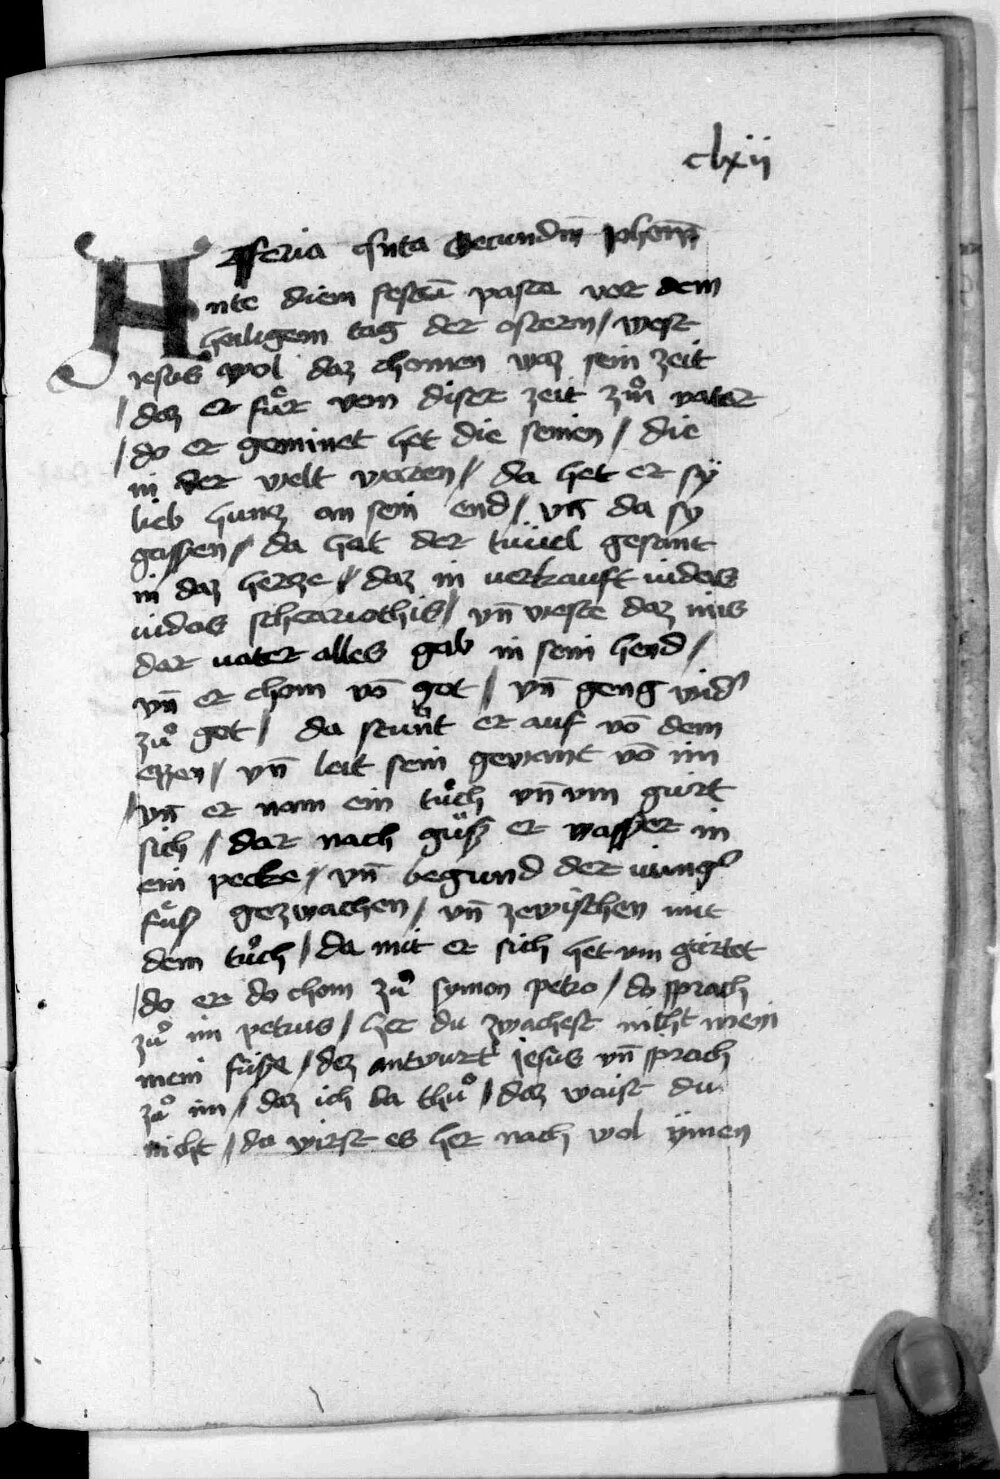 clxii
Feria qinta Secundm Johem
Ante diem festum pasce vor dem
heiligem tag der ostern / west
iesus wol daz chomen waz sein zeit
/ daz er fuͤr von diser zeit zuͦm vater
/ do er geminet het die seinen / die
in der welt waren / da het er sÿ
lieb hunz an sein end / vn̄ da sy
gassen / da hat der tüüel gesant
in daz hercze / daz in verkauft iudas
iudas scheariothis / vn̄ weste daz ims
der vater alles gab in sein hend /
vn̄ er chom vō got / vn̄ geng wid'
zuͦ got / da stunt er auf vō dem
ezzen / vn̄ leit sein gewant vō im
/ vn̄ er nam ein tuͦch vn̄ vm gurt
sich / dar nach güß er wasser in
ein pecke / vn̄ begund der iüng'
fuͤß gezwachen / vn̄ zewischen mit
dem tuͦch / da mit er sich het vm gürtet
/ do er do chom zuͦ symon petro / do sprach
zuͦ im petrus / her du zwachest nicht mein
mein füße / dez antwurt iesus vn̄ sprach
zuͦ im / daz ich da thuͦ / daz waist du
nicht / du wirst es her nach wol